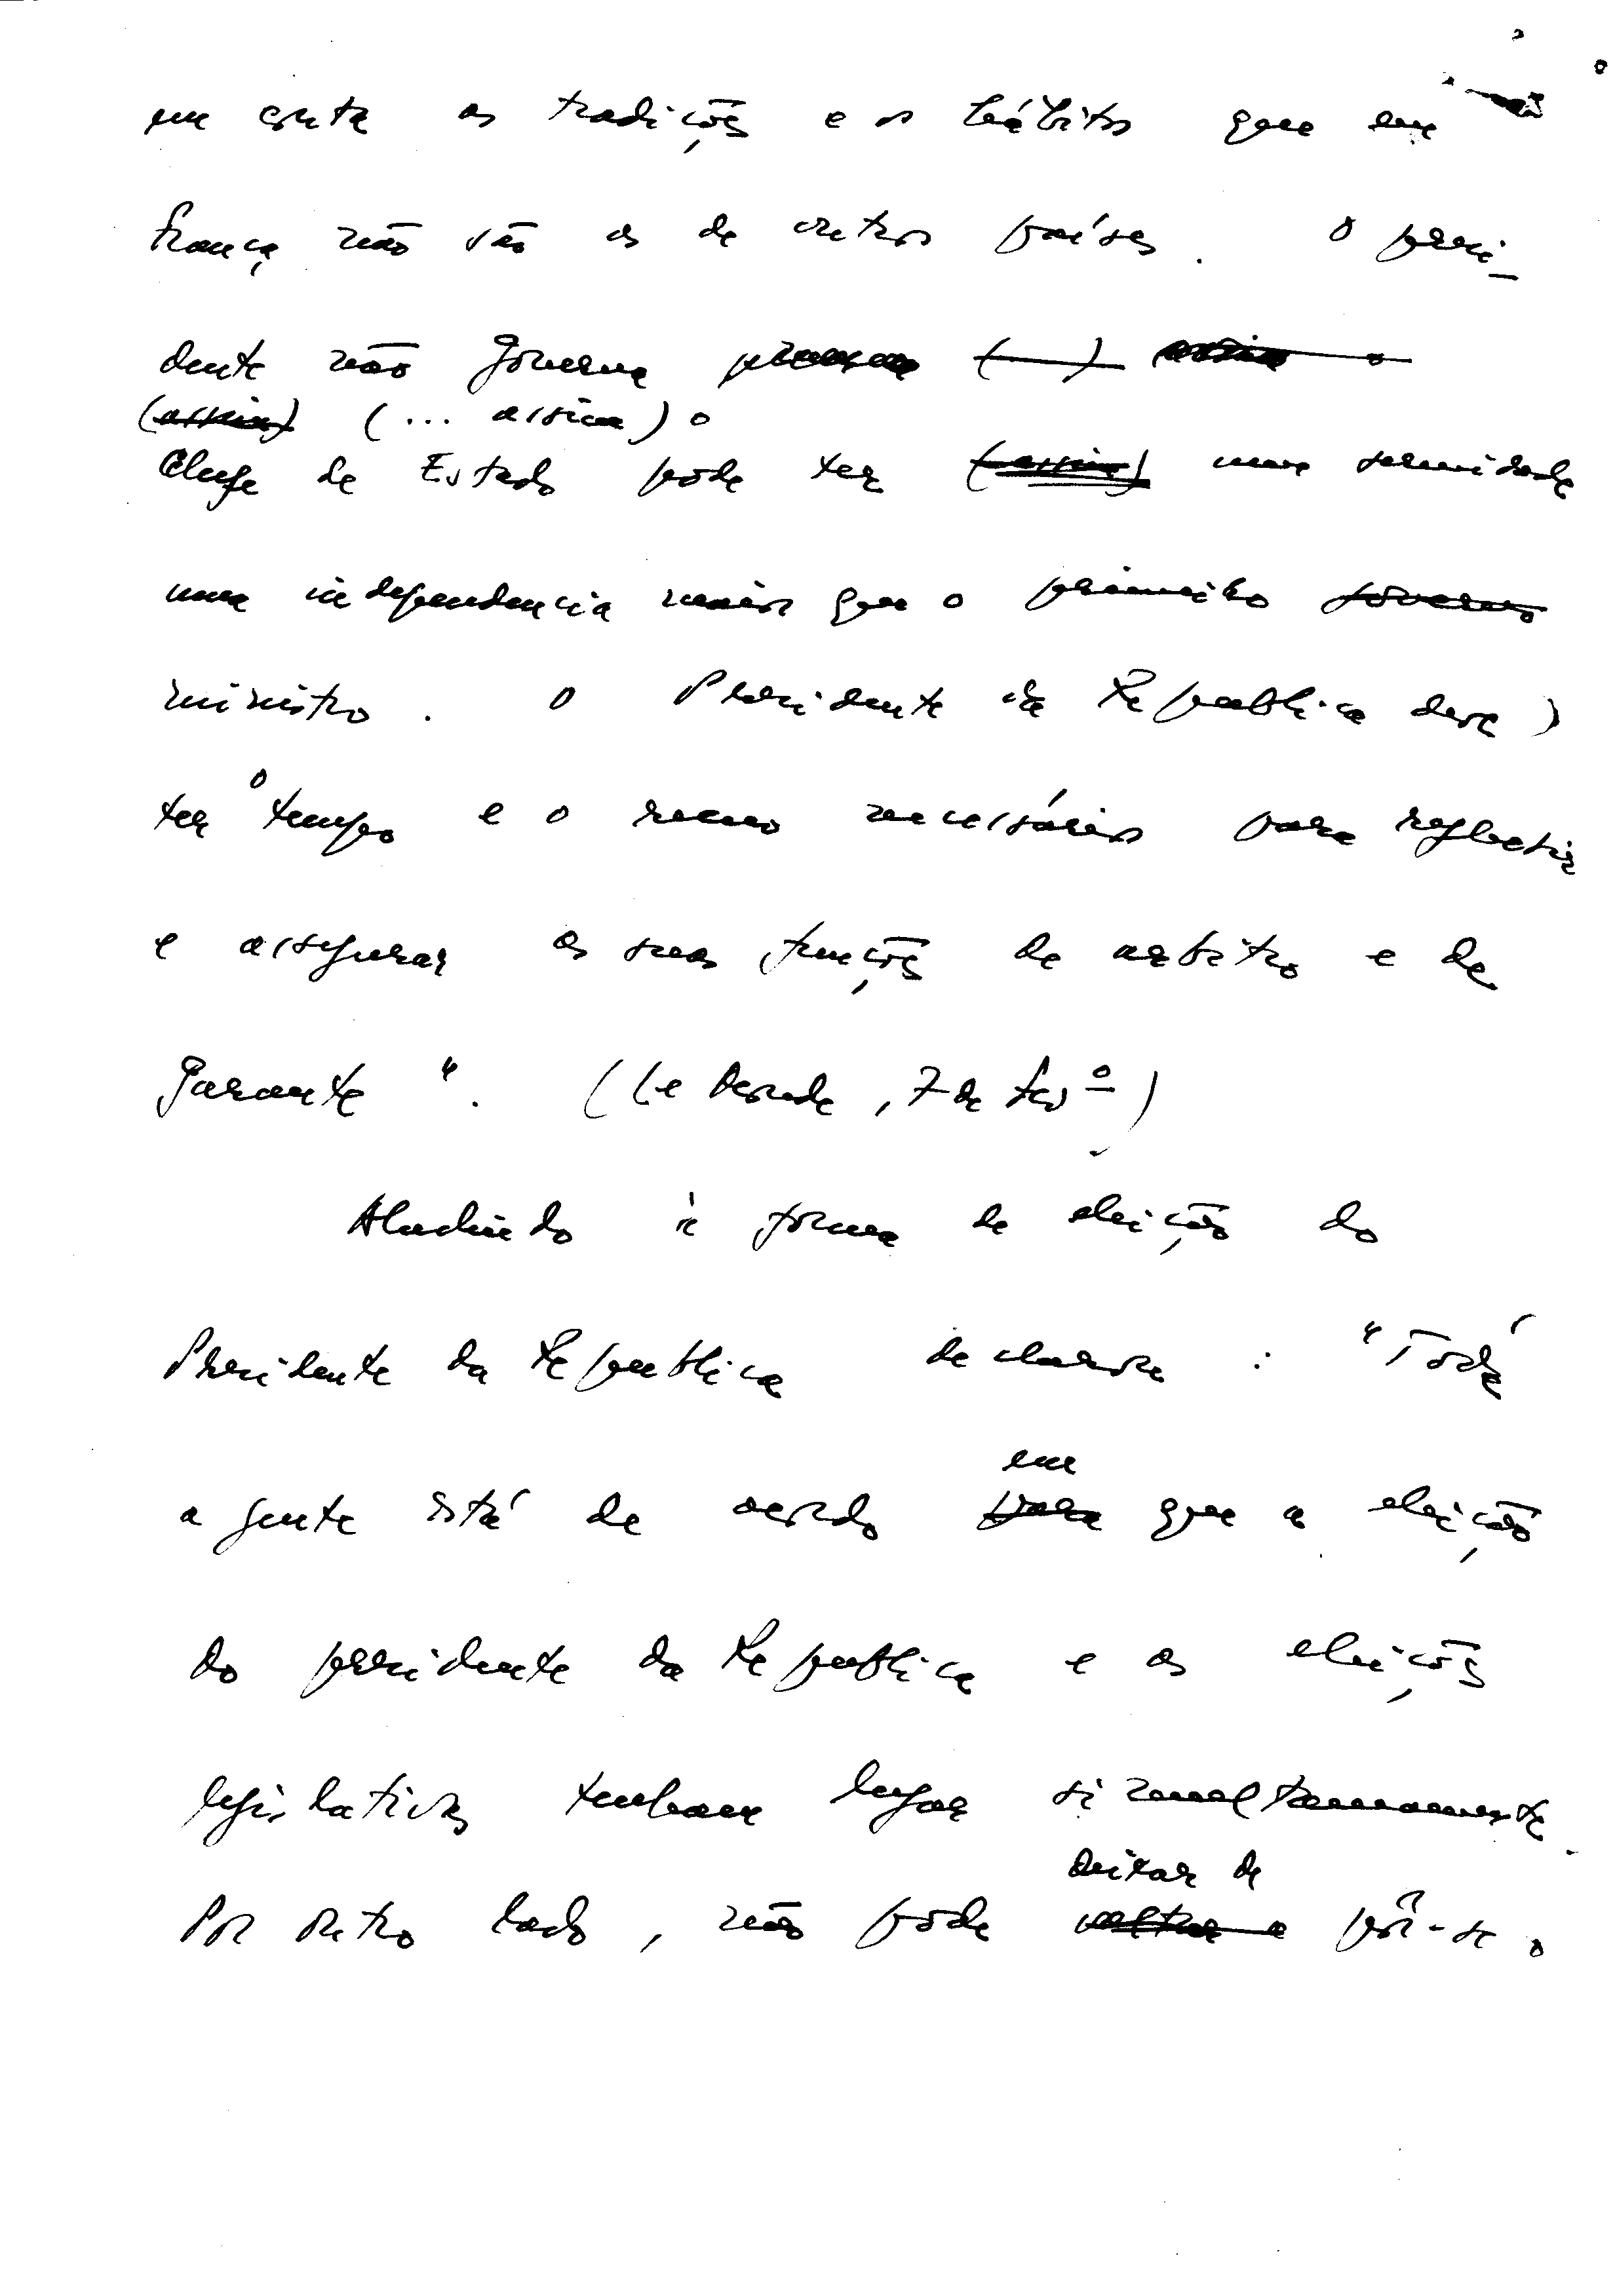 em conta as tradições e os hábitos que em
França não são os de outros países. O presi-
dente não governa (...) assim o
(assim) (... assim) o
Chefe de Estado pode ter (assim) uma serenidade
uma independencia maior que o primeiro governo
ministro. O Presidente da Republica deve
ter o tempo e o recuo necessários para reflectir
e assegurar as suas funções de arbitro e de
garante". (Le Monde, 7 de fevº)
Aludindo à forma de eleição do
Presidente da Republica declarou: "Toda
a gente está de acordo em
que a eleição
do presidente da Republica e as eleições
legislativas tenham lugar simultaneamente.
deixar de
Por outro lado, não pode voltar a pôr-se o